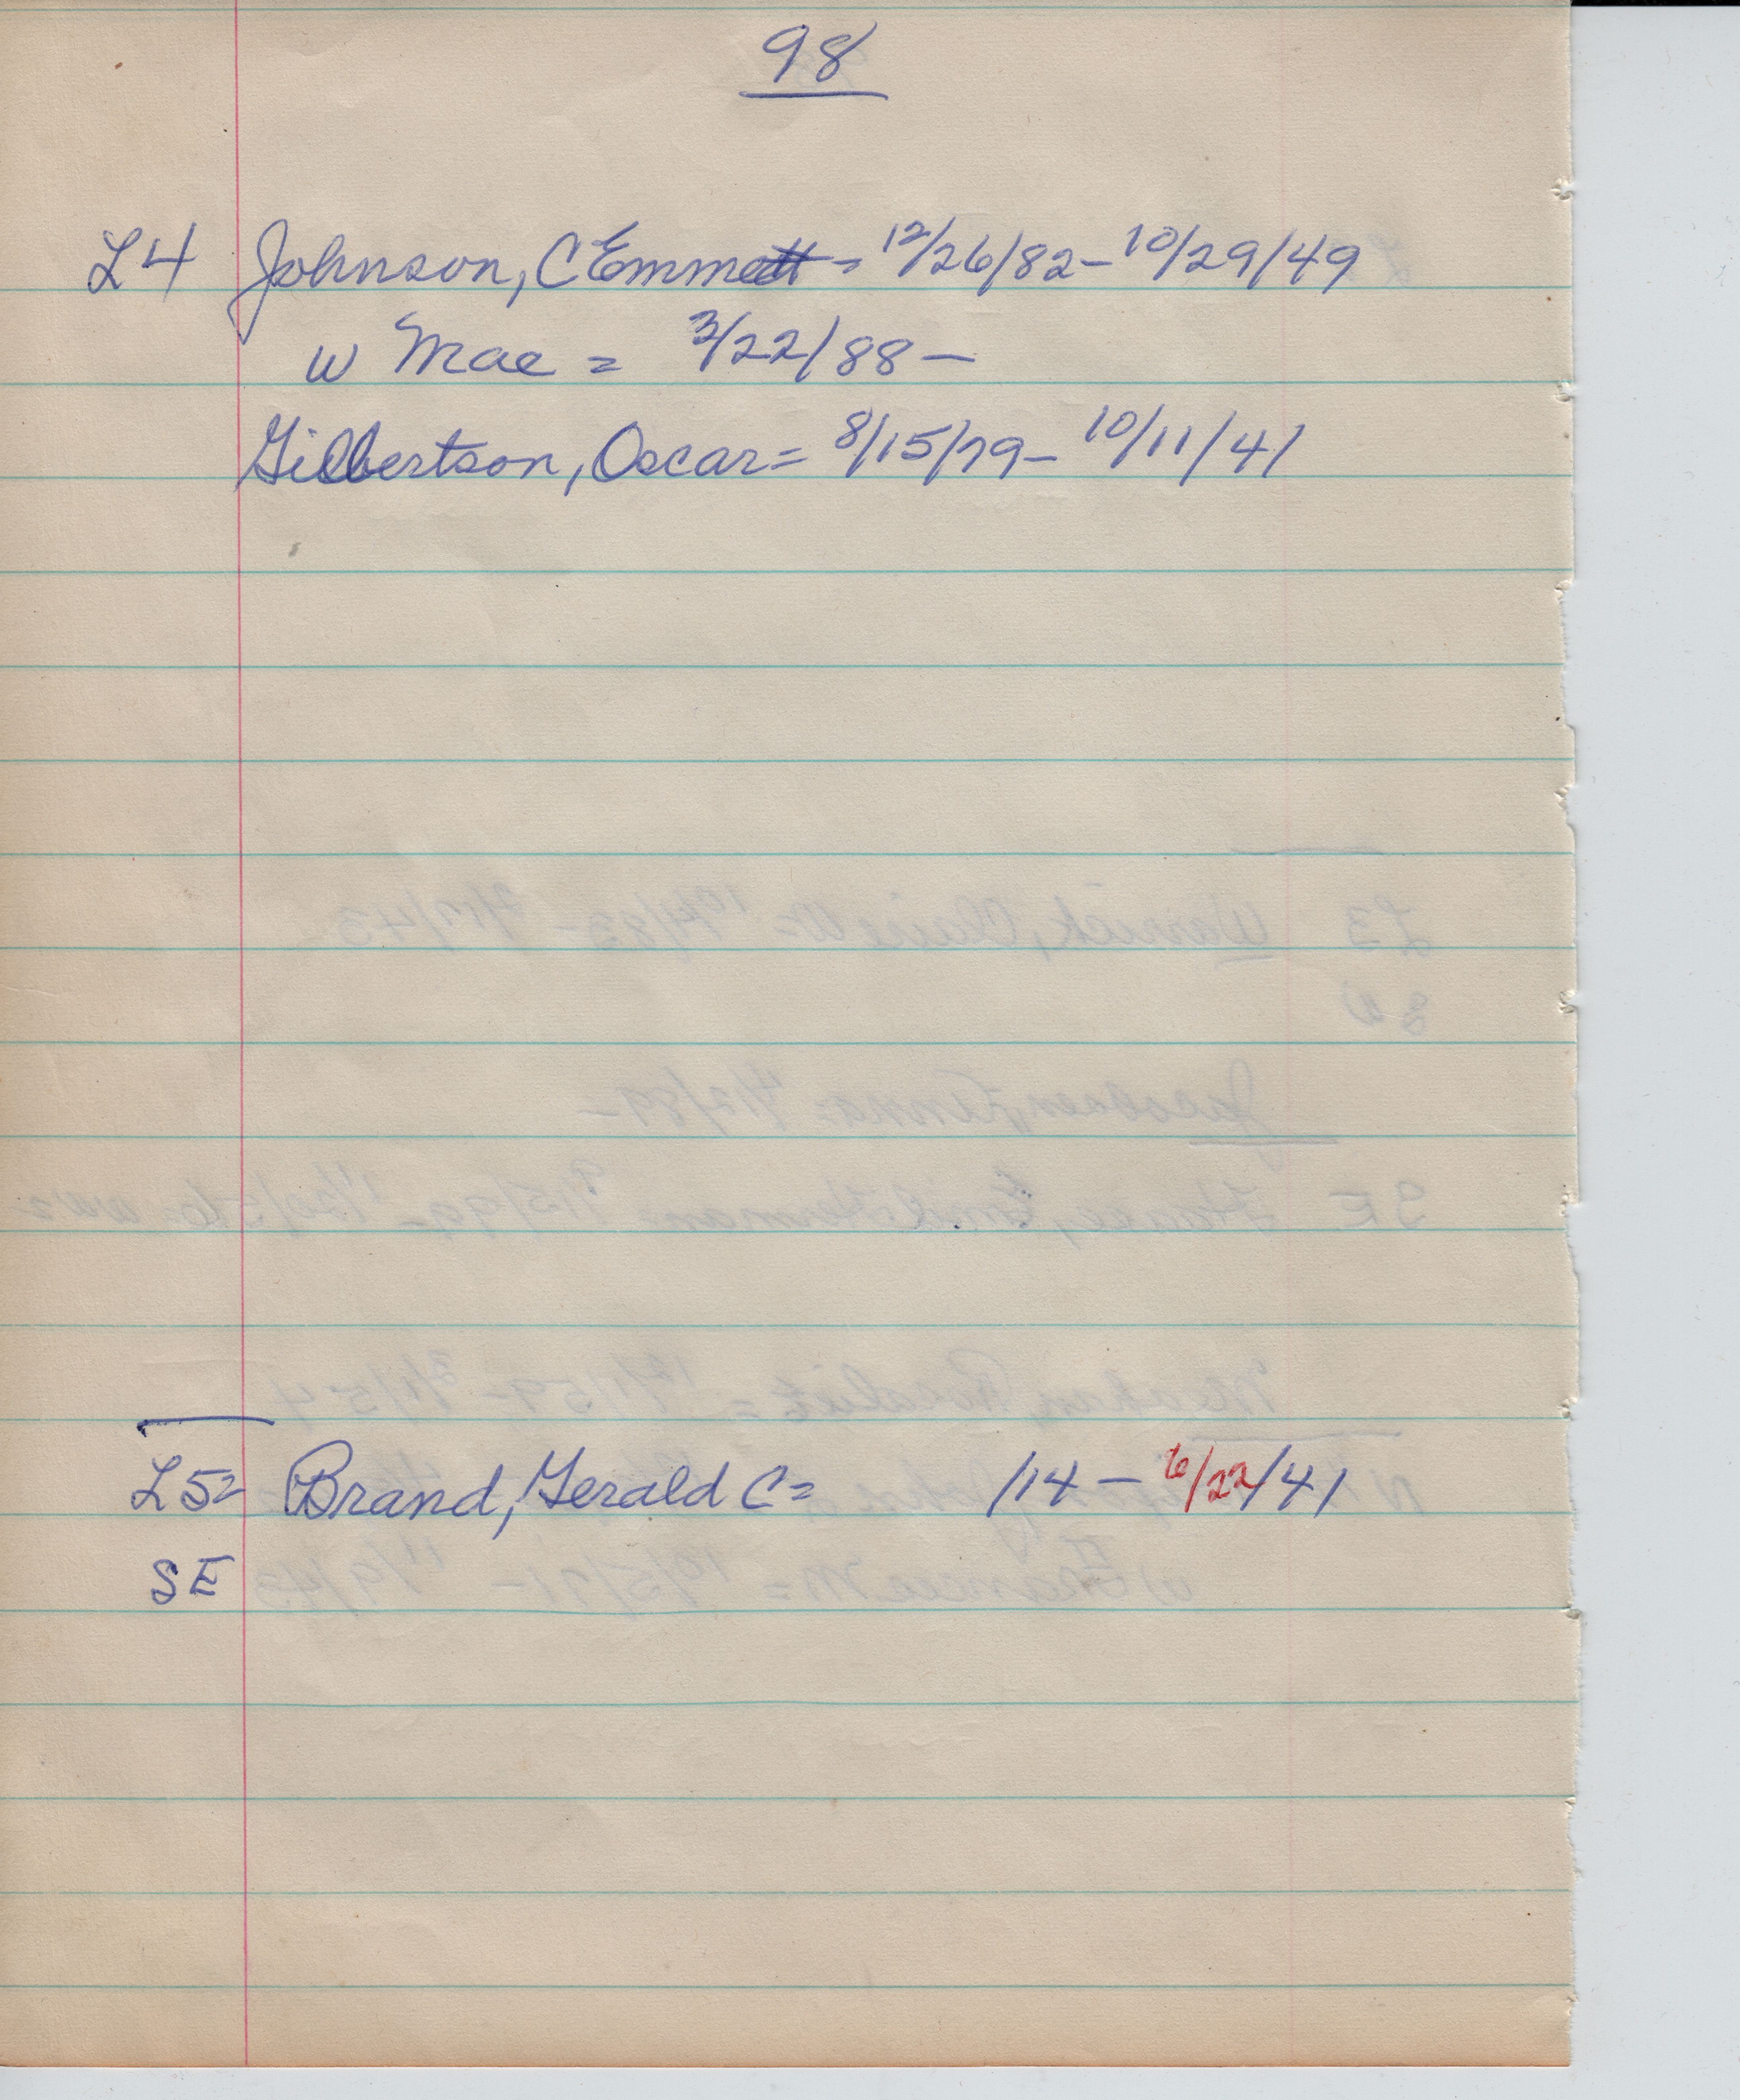 98
L4 Johnson, C Emmett = 12/26/82 – 10/29/49
w Mae = 3/22/88 –
Gilbertson, Oscar = 8/15/79 – 10/11/41
L5= Brand, Gerald C = /14 – 6/22/41
SE